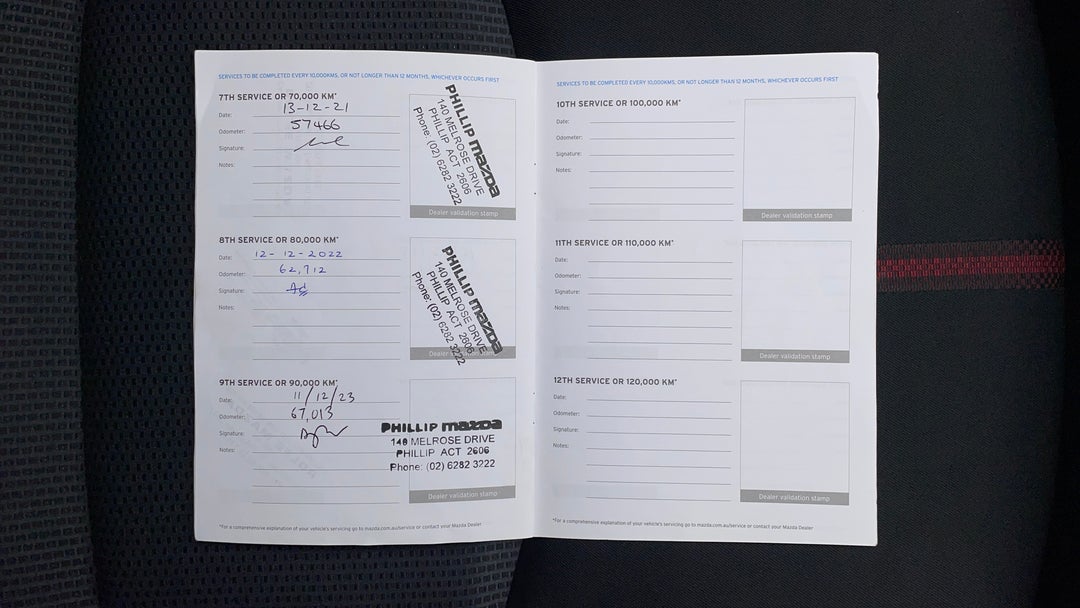 SERVICES TO BE COMPLETED EVERY 10,000KMS, OR NOT LONGER THAN 12 MONTHS, WHICHEVER OCCURS FIRST
7TH SERVICE OR 70,000 KM*
Date: 13-12-21
Odometer: 57466
Signature:
Notes:
PHILLIP mazda
140 MELROSE DRIVE
PHILLIP ACT 2606
Phone: (02) 6282 3222
Dealer validation stamp
8TH SERVICE OR 80,000 KM*
Date: 12-12-2022
Odometer: 62,712
Signature:
Notes:
PHILLIP mazda
140 MELROSE DRIVE
PHILLIP ACT 2606
Phone: (02) 6282 3222
Dealer validation stamp
9TH SERVICE OR 90,000 KM*
Date: 11/12/23
Odometer: 67,013
Signature:
Notes:
PHILLIP mazda
140 MELROSE DRIVE
PHILLIP ACT 2606
Phone: (02) 6282 3222
Dealer validation stamp
*For a comprehensive explanation of your vehicle's servicing go to mazda.com.au/service or contact your Mazda Dealer
SERVICES TO BE COMPLETED EVERY 10,000KMS, OR NOT LONGER THAN 12 MONTHS, WHICHEVER OCCURS FIRST
10TH SERVICE OR 100,000 KM*
Date:
Odometer:
Signature:
Notes:
Dealer validation stamp
11TH SERVICE OR 110,000 KM*
Date:
Odometer:
Signature:
Notes:
Dealer validation stamp
12TH SERVICE OR 120,000 KM*
Date:
Odometer:
Signature:
Notes:
Dealer validation stamp
*For a comprehensive explanation of your vehicle's servicing go to mazda.com.au/service or contact your Mazda Dealer